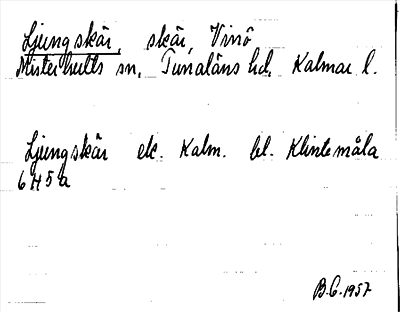 Ljungskär, skär, Vinö
Misterhults sn, Tunaläns hd, Kalmar l.
Ljungskär ek. Kalm. bl. Klintemåla
6 H 5 a
B.G. 1957